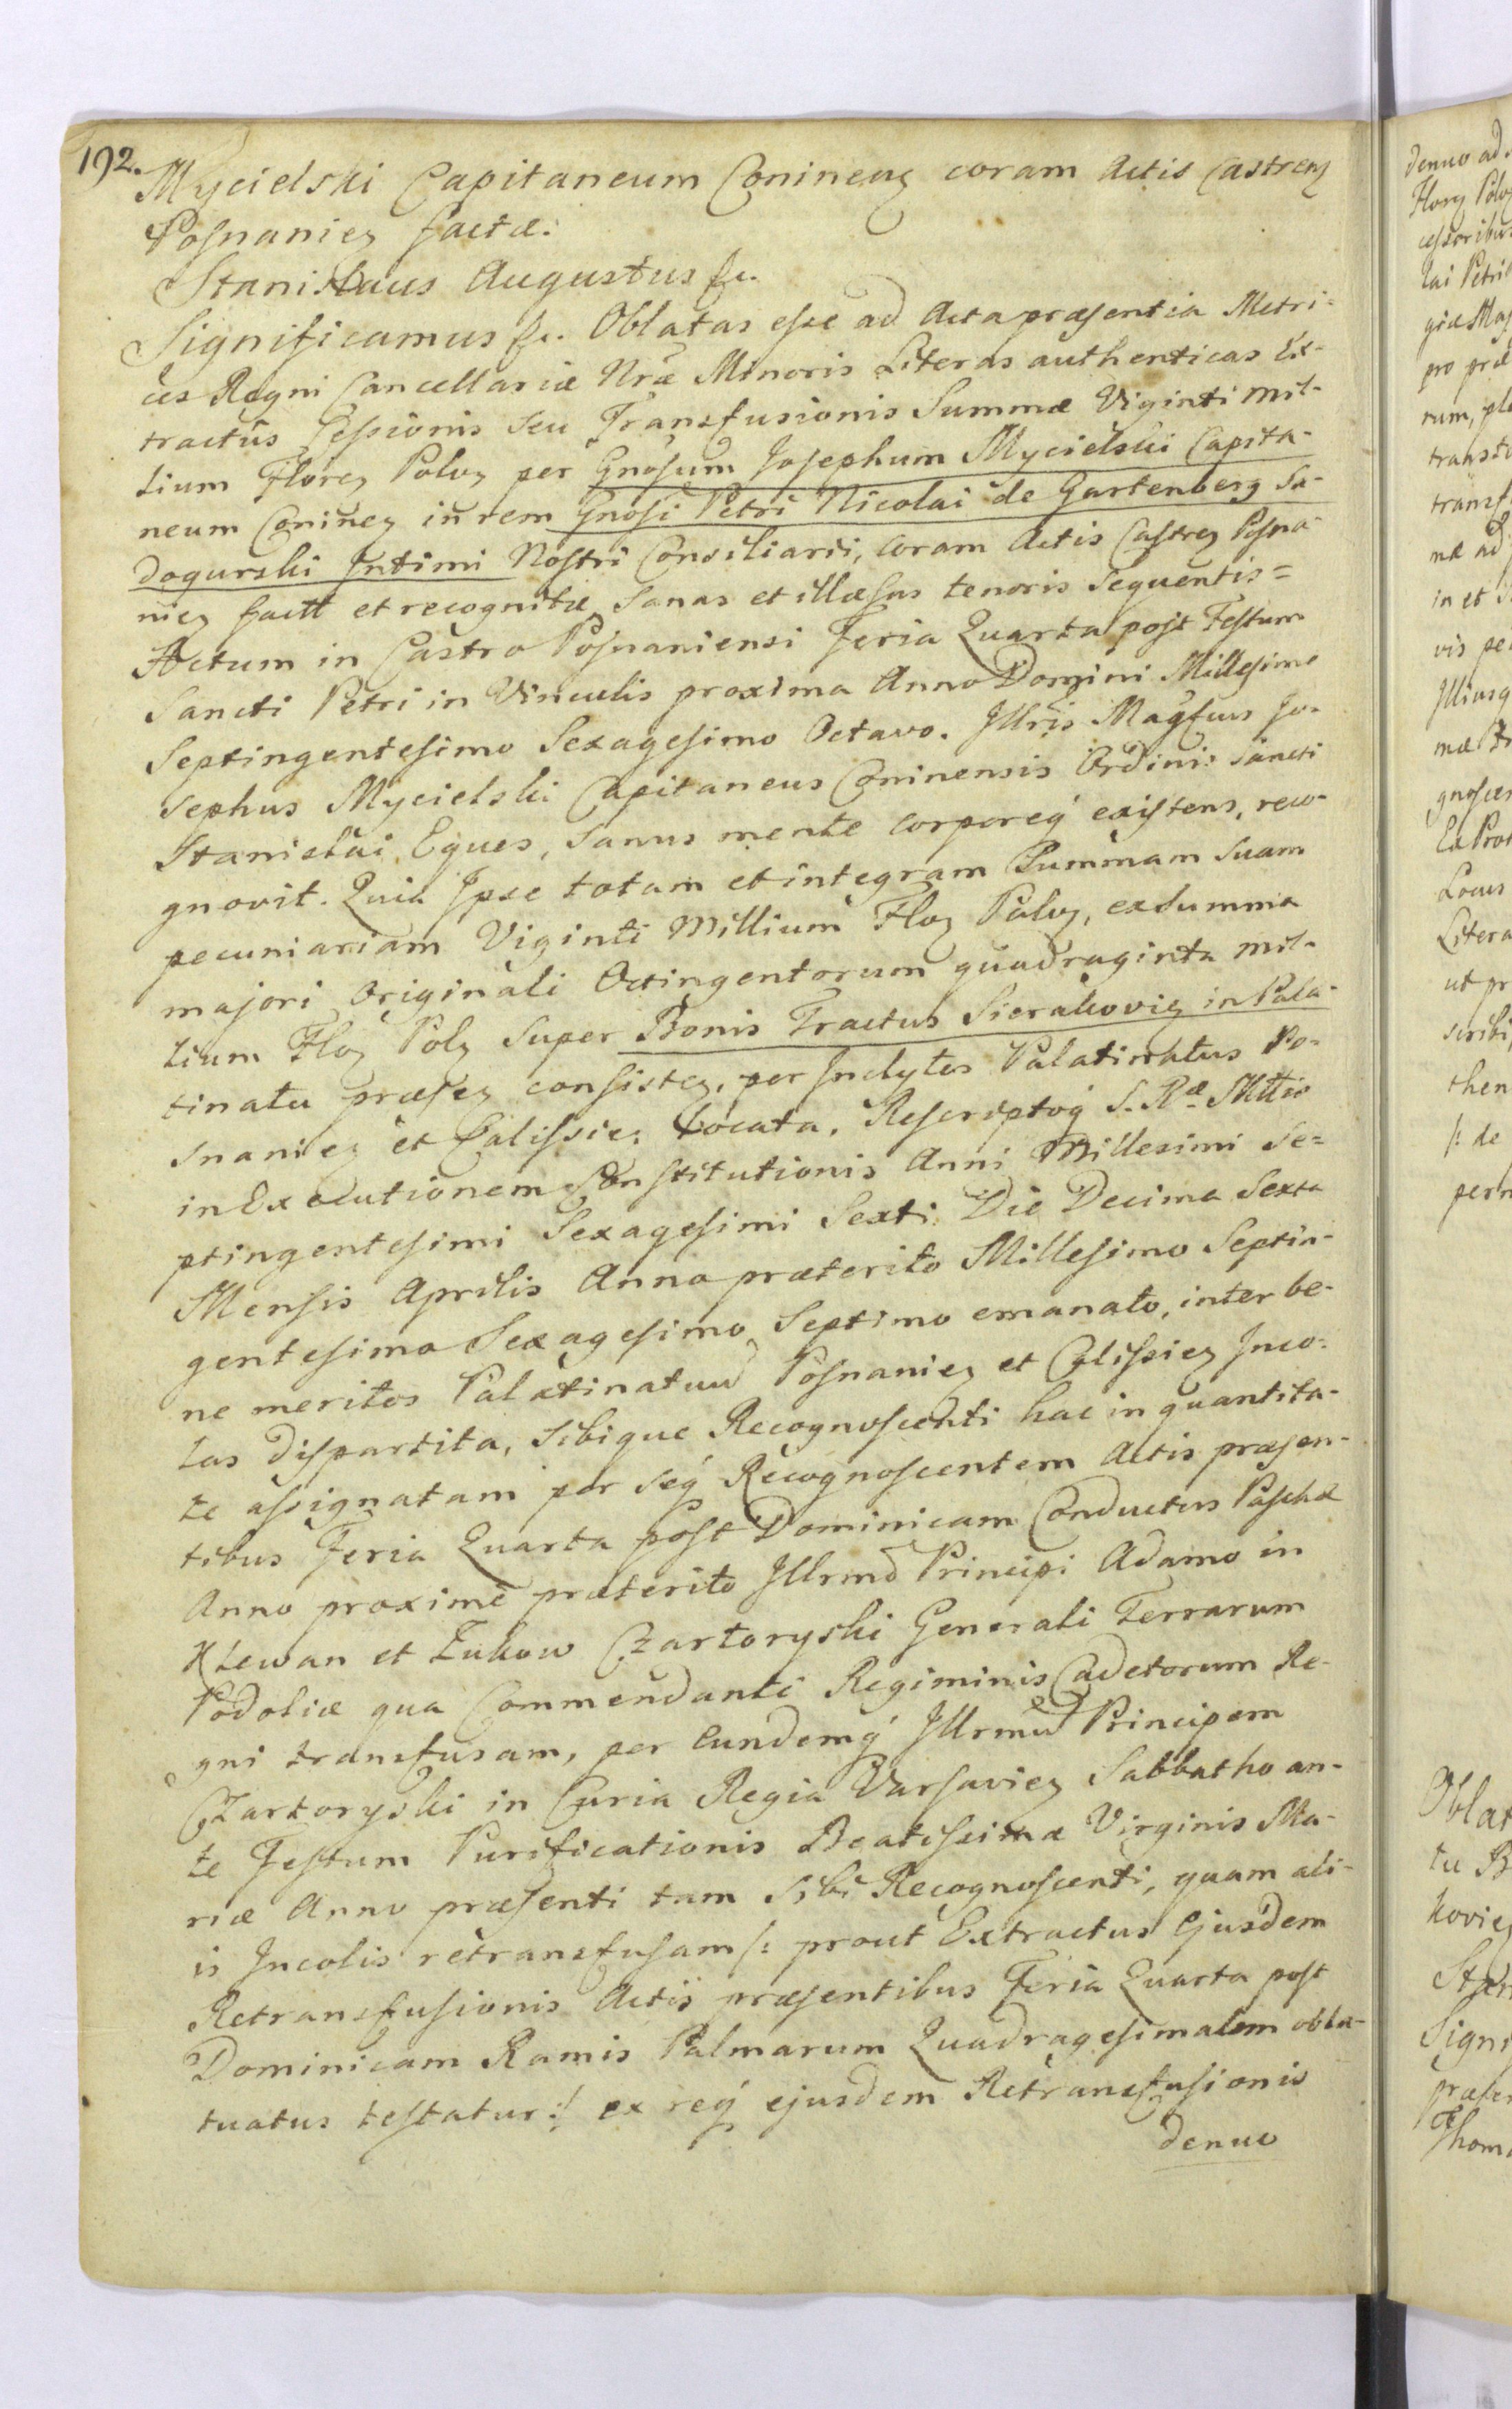 192.
Mycielski Capitaneum Coninens coram Actis Castrens
Posnanies factæ.
Stanislaus Augustus &c.
Significamus &c. Oblatas esse ad Acta præsentia Metri-
ces Regni Cancellariæ Nræ Minoris Literas authenticas Ex-
tractûs Cessionis seu Transfusionis Summæ Viginti mil-
lium Flores Polos per Gnosum Josephum Mycielski Capita-
neum Conines in rem Gnosi Petri Nicolai de Gartenberg Sa-
dogurski Intimi Nostri Consiliarii, coram Actis Castres Posna-
nies factæ et recognitæ, Sanas et illæsas tenoris sequentis =
Actum in Castro Posnaniensi Feria Quarta post Festum
Sancti Petri in Vinculis proxima Anno Domini Millesimo
Septingentesimo Sexagesimo Octavo. Jllris Magfus Jo-
sephus Mycielski Capitaneus Coninensis Ordinis Sancti
Stanislai Eques, Sanus mente corporeq́ existens, reco-
gnovit. Quia Ipse totam et integram Summam suam
pecuniariam Viginti Millium Flos Palos, ex summa
majori Originali Octingentorum quadraginta mil-
lium Flos Pols super Bonis Tractus Sierakovis in Pala-
tinatu præses consistes, per Inclytos Palatinatus Po-
snanies et Calissies Locata, Rescriptoq́ S. Ræ Mttis
in Executionem Constitutionis Anni Millesimi Se-
ptingentesimi Sexagesimi Sexti Die Decima Sexta
Mensis Aprilis Anno præterito Millesimo Septin-
gentesimo Sexagesimo Septimo emanato, inter be-
ne meritos Palatinatuū Posnanies et Calissies Inco-
las dispartita, sibique Recognoscenti hac in quantita-
te assignatam per seq́ Recognoscentem Actis præsen-
tibus Feria Quarta post Dominicam Conductus Paschæ
Anno proxime præterito Jllrmo Principi Adamo in
Klewan et Zukow Czartoryski Generali Terrarum
Podoliæ qua Commendanti Regiminis Cadetorum Re-
gni transfusam, per Eundemq́ Jllrmū Principem
Czartoryski in Curia Regia Varsavies Sabbatho an-
te Festum Purificationis Beatissimæ Virginis Ma-
riæ Anno præsenti tam sibi Recognoscenti, quam ali-
is Incolis retransfusam /: prout Extractus Ejusdem
Retransfusionis Actis præsentibus Feria Quarta post
Dominicam Ramis Palmarum Quadragesimalem obla-
tuatus testatur :/ ex req́ ejusdem Retransfusionis
denuo